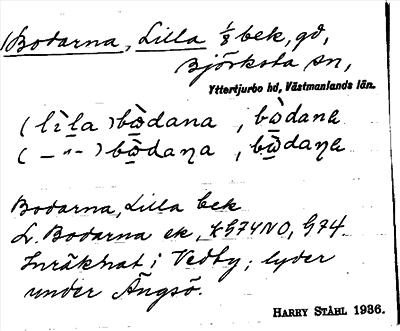 Bodarna, Lilla 1/8 bek, gd,
Björksta sn,
Yttertjurbo hd, Västmanlands län.
(lìla) bὼdana, bὼdana
(–"–) bὼdaɳa, bὼdaɳa
Bodarna, Lilla bek
L. Bodarna ek, G74NO, G74.
Inräknat i Vedby; lyder
under Ängsö.
HARRY STÅHL 1936.